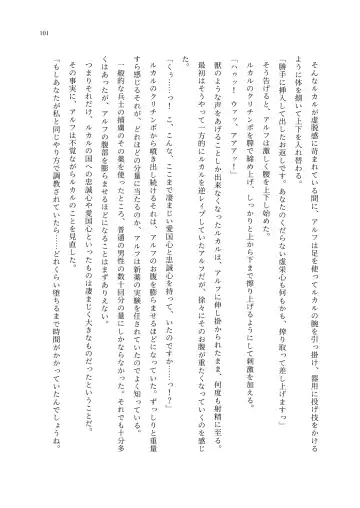 101
そんなルカルが虚脱感に苛まれている間に、アルフは足を使ってルカルの腕を引っ掛け、器用に投げ技をかける
ように体を捻いて上下を入れ替える。
「勝手に挿入して出したお返しです。あなたのくだらない虚栄心も何もかも、搾り取って差し上げますっ」
そう告げると、アルフは激しく腰を上下し始めた。
ルカルのクリチンポを膣で締め上げ、しっかりと上から下まで擦り上げるようにして刺激を加える。
「ハゥッ！　ウァッ、アアアッ！」
獣のような声をあげることしか出来なくなったルカルは、アルフに伸し掛かられたまま、何度も射精に至る。
最初はそうやって一方的にルカルを逆レイプしていたアルフだが、徐々にそのお腹が重たくなっていくのを感じ
た。
「くぅ……っ！　こ、こんな、ここまで凄まじい愛国心と忠誠心を持って、いたのですか……っ！？」
ルカルのクリチンポから噴き出し続けるそれは、アルフのお腹を膨らませるほどになっていた。ずっしりと重量
すら感じるそれが、どれほどの分量に当たるのか、アルフは新薬の実験を任されていたのでよく知っている。
一般的な兵士の捕虜にその薬を使ったところ、普通の男性の数十回分の量にしかならなかった。それでも十分多
くはあったが、アルフの腹部を膨らませるほどになることはまずありえない。
つまりそれだけ、ルカルの国への忠誠心や愛国心といったものは凄まじく大きなものだったということだ。
その事実に、アルフは不覚ながらルカルのことを見直した。
「もしあなたが私と同じやり方で調教されていたら……どれくらい堕ちるまで時間がかかっていたんでしょうね。